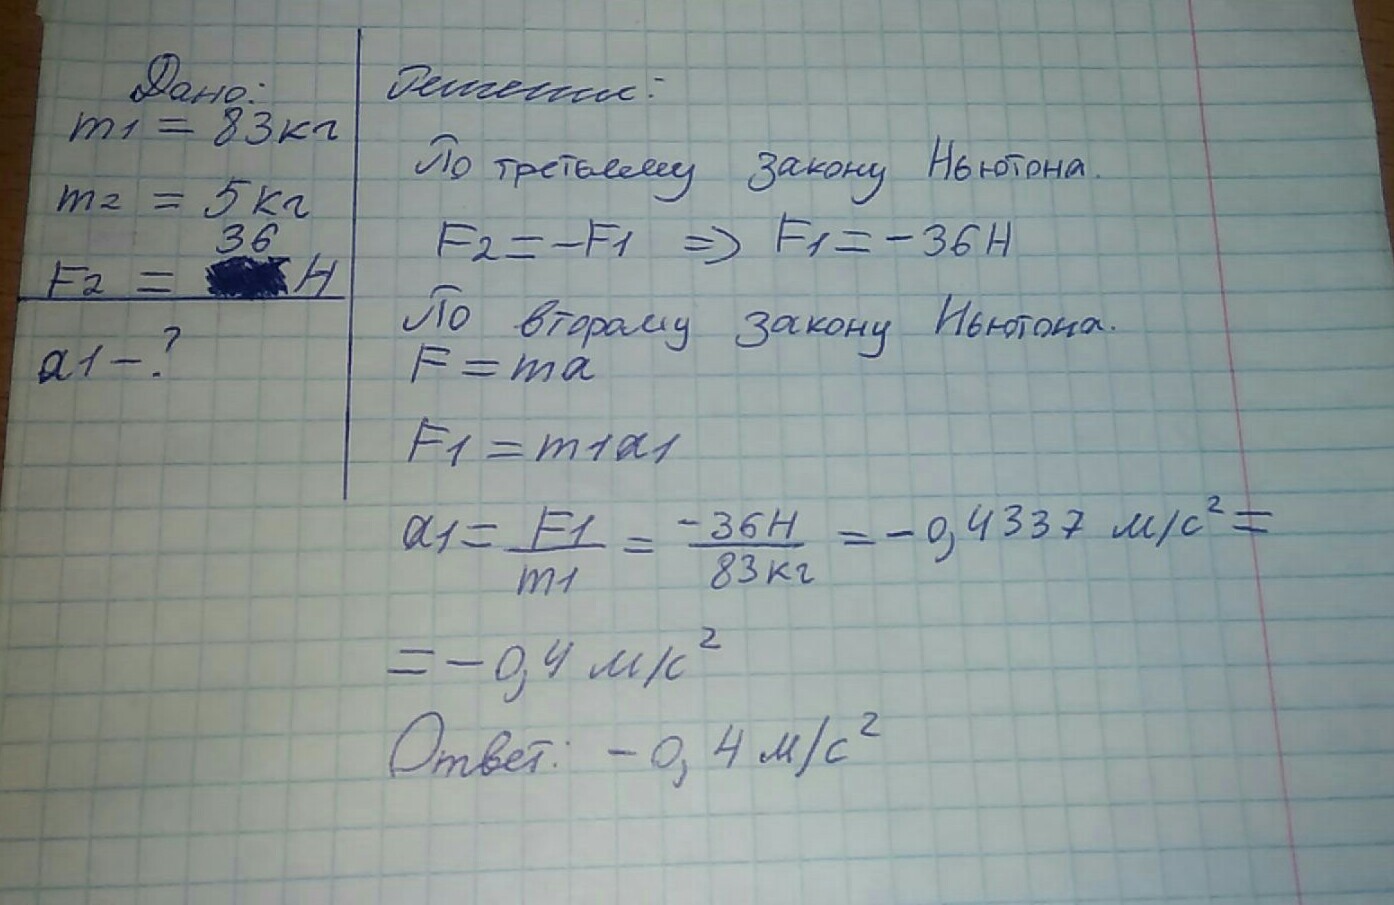 Дано:
m1 = 83кг
m2 = 5кг
36
F2 = Н
a1 - ?
Решение:
По третьему закону Ньютона.
F2 = -F1 => F1 = -36Н
По второму закону Ньютона.
F = ma
F1 = m1a1
a1 = F1/m1 = -36Н/83кг = -0,4337 м/с² =
= -0,4 м/с²
Ответ: -0,4 м/с²